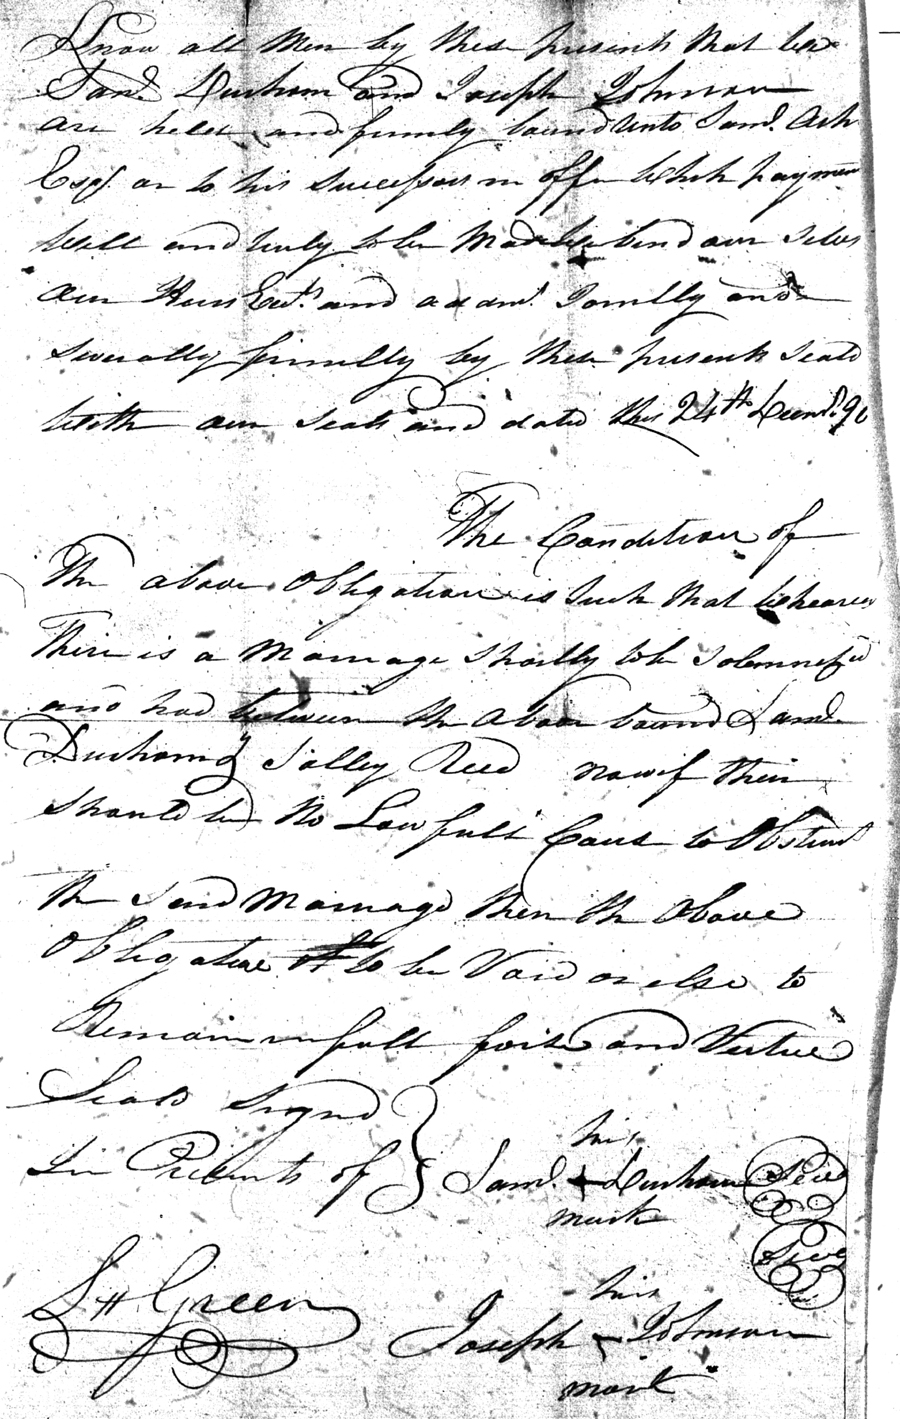 Know all Men by these presents that we
Sam.l Durham and Joseph Johnson
are held and firmly bound unto Sam.l Ash
Esq.r or to his successors in offic which paymen
well and truly to be Made we bend our selves
our Heirs Exr.s and adms Jointly and
severally firmly by these presents seald
with our seals and dated this 24th Decem.r 90
The Condition of
The above Obligation is such that whereas
There is a Marriage shortly to be solemnised
and had between the above bound Sam.l
Durham & Salley Reed now if their
should be No Lawfull Caus to Obstruct
the said Marriage then the Above
Obligation to be Void or else to
Remain in full force and Vertue
Seald Signd
In Presents of } Sam.l his + mark Durham Seal
Seal
Joseph his + mark Johnson
L H Green